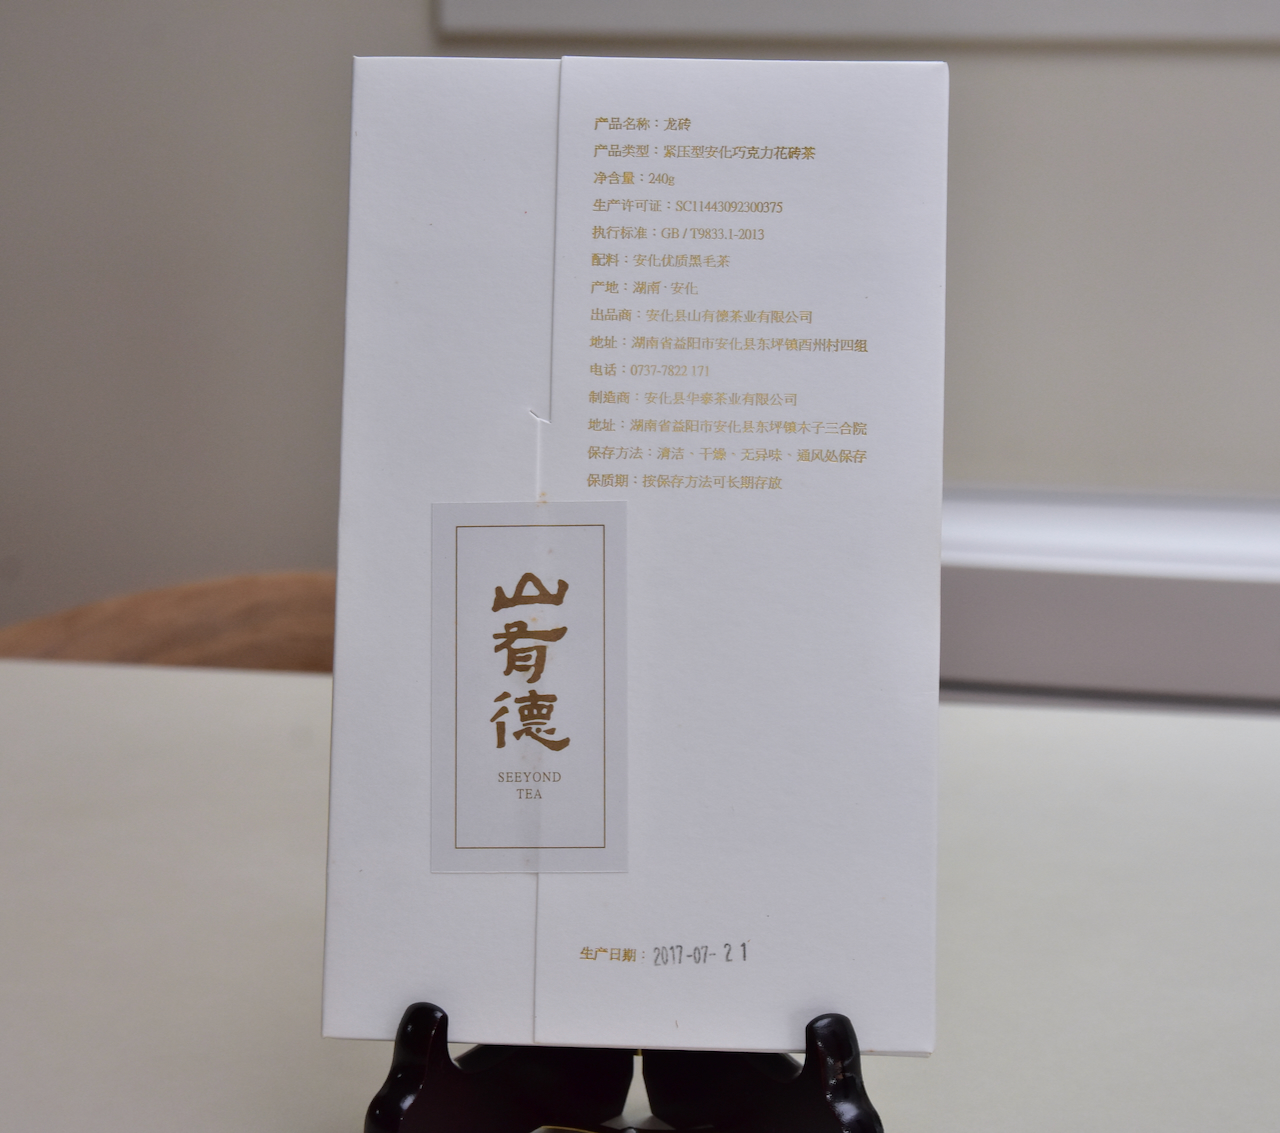 产品名称：龙砖
产品类型：紧压型安化巧克力花砖茶
净含量：240g
生产许可证：SC11443092300375
执行标准：GB / T9833.1-2013
配料：安化优质黑毛茶
产地：湖南·安化
出品商：安化县山有德茶业有限公司
地址：湖南省益阳市安化县东坪镇酉州村四组
电话：0737-7822 171
制造商：安化县华泰茶业有限公司
地址：湖南省益阳市安化县东坪镇木子三合院
保存方法：清洁、干燥、无异味、通风处保存
保质期：按保存方法可长期存放
山有德
SEEYOND
TEA
生产日期：2017-07-21